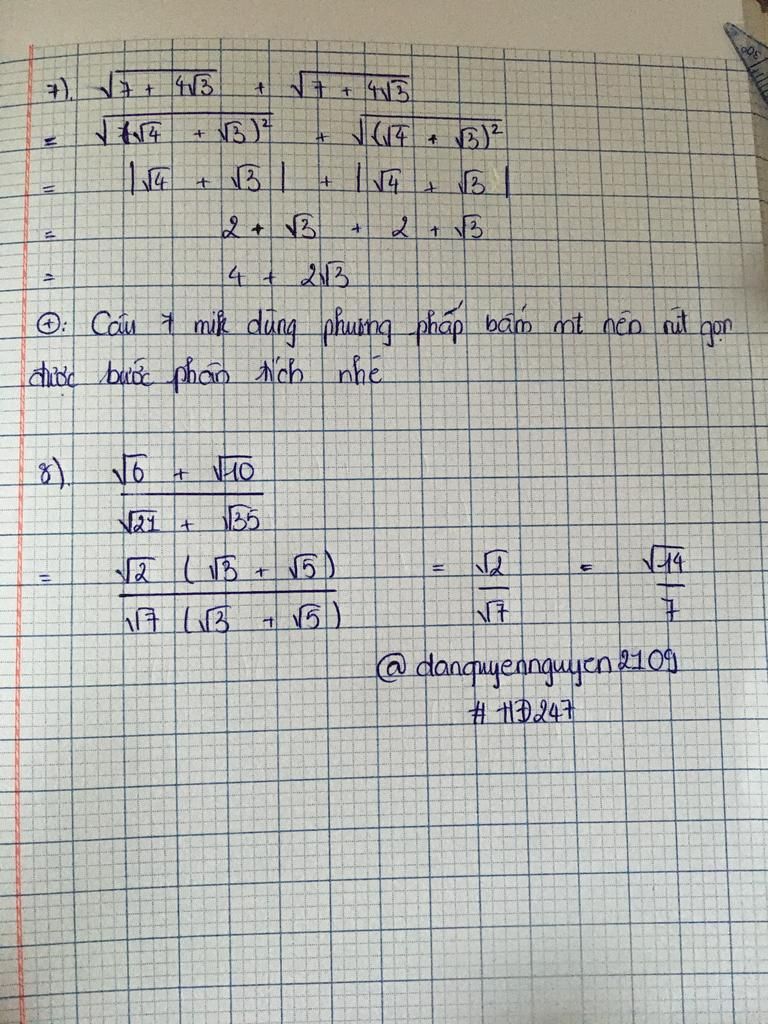 7). √(7 + 4√3) + √(7 + 4√3)
= √((√4 + √3)²) + √((√4 + √3)²)
= |√4 + √3| + |√4 + √3|
= 2 + √3 + 2 + √3
= 4 + 2√3
⊕: Câu 7 mik dùng phương pháp bấm mt nên rút gọn
được bước phân tích nhé
8). (√6 + √10) / (√21 + √35)
= (√2 (√3 + √5)) / (√7 (√3 + √5)) = √2/√7 = √14/7
@danquyennguyen2109
# HD247
30°